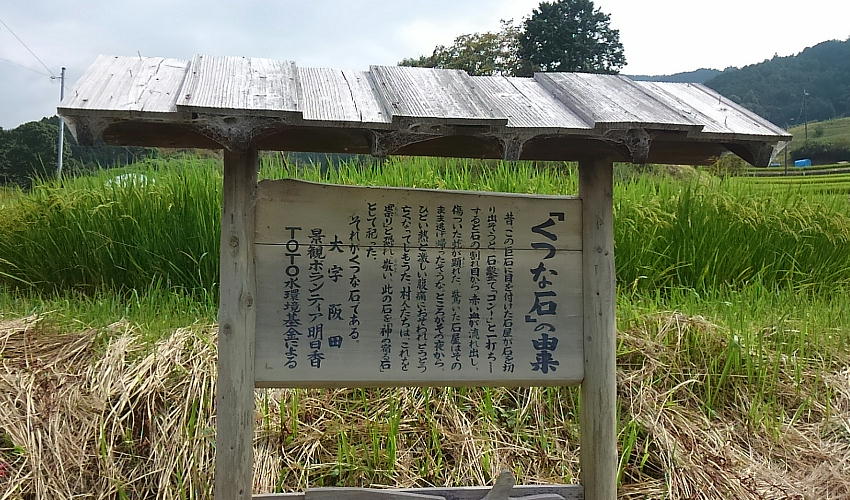 『くつな石』の由来
昔、この巨石に目を付けた石屋が石を切
り出そうと、石鑿で“コツン”と一打ちう
すると石の割れ目から、赤い血が流れ出し、
傷ついた蛇が顕れた。驚いた石屋はその
まま逃げ帰ったそうな。ところがその夜から、
ひどい熱と激しい腹痛におそわれとうとう
亡くなってしもうた。村人たちは、これを
祟りと恐れ、敬い、此の石を神の宿る石
として祀った。
それがくつな石である。
大字 阪田
景観ボランティア明日香
TOTO水環境基金による